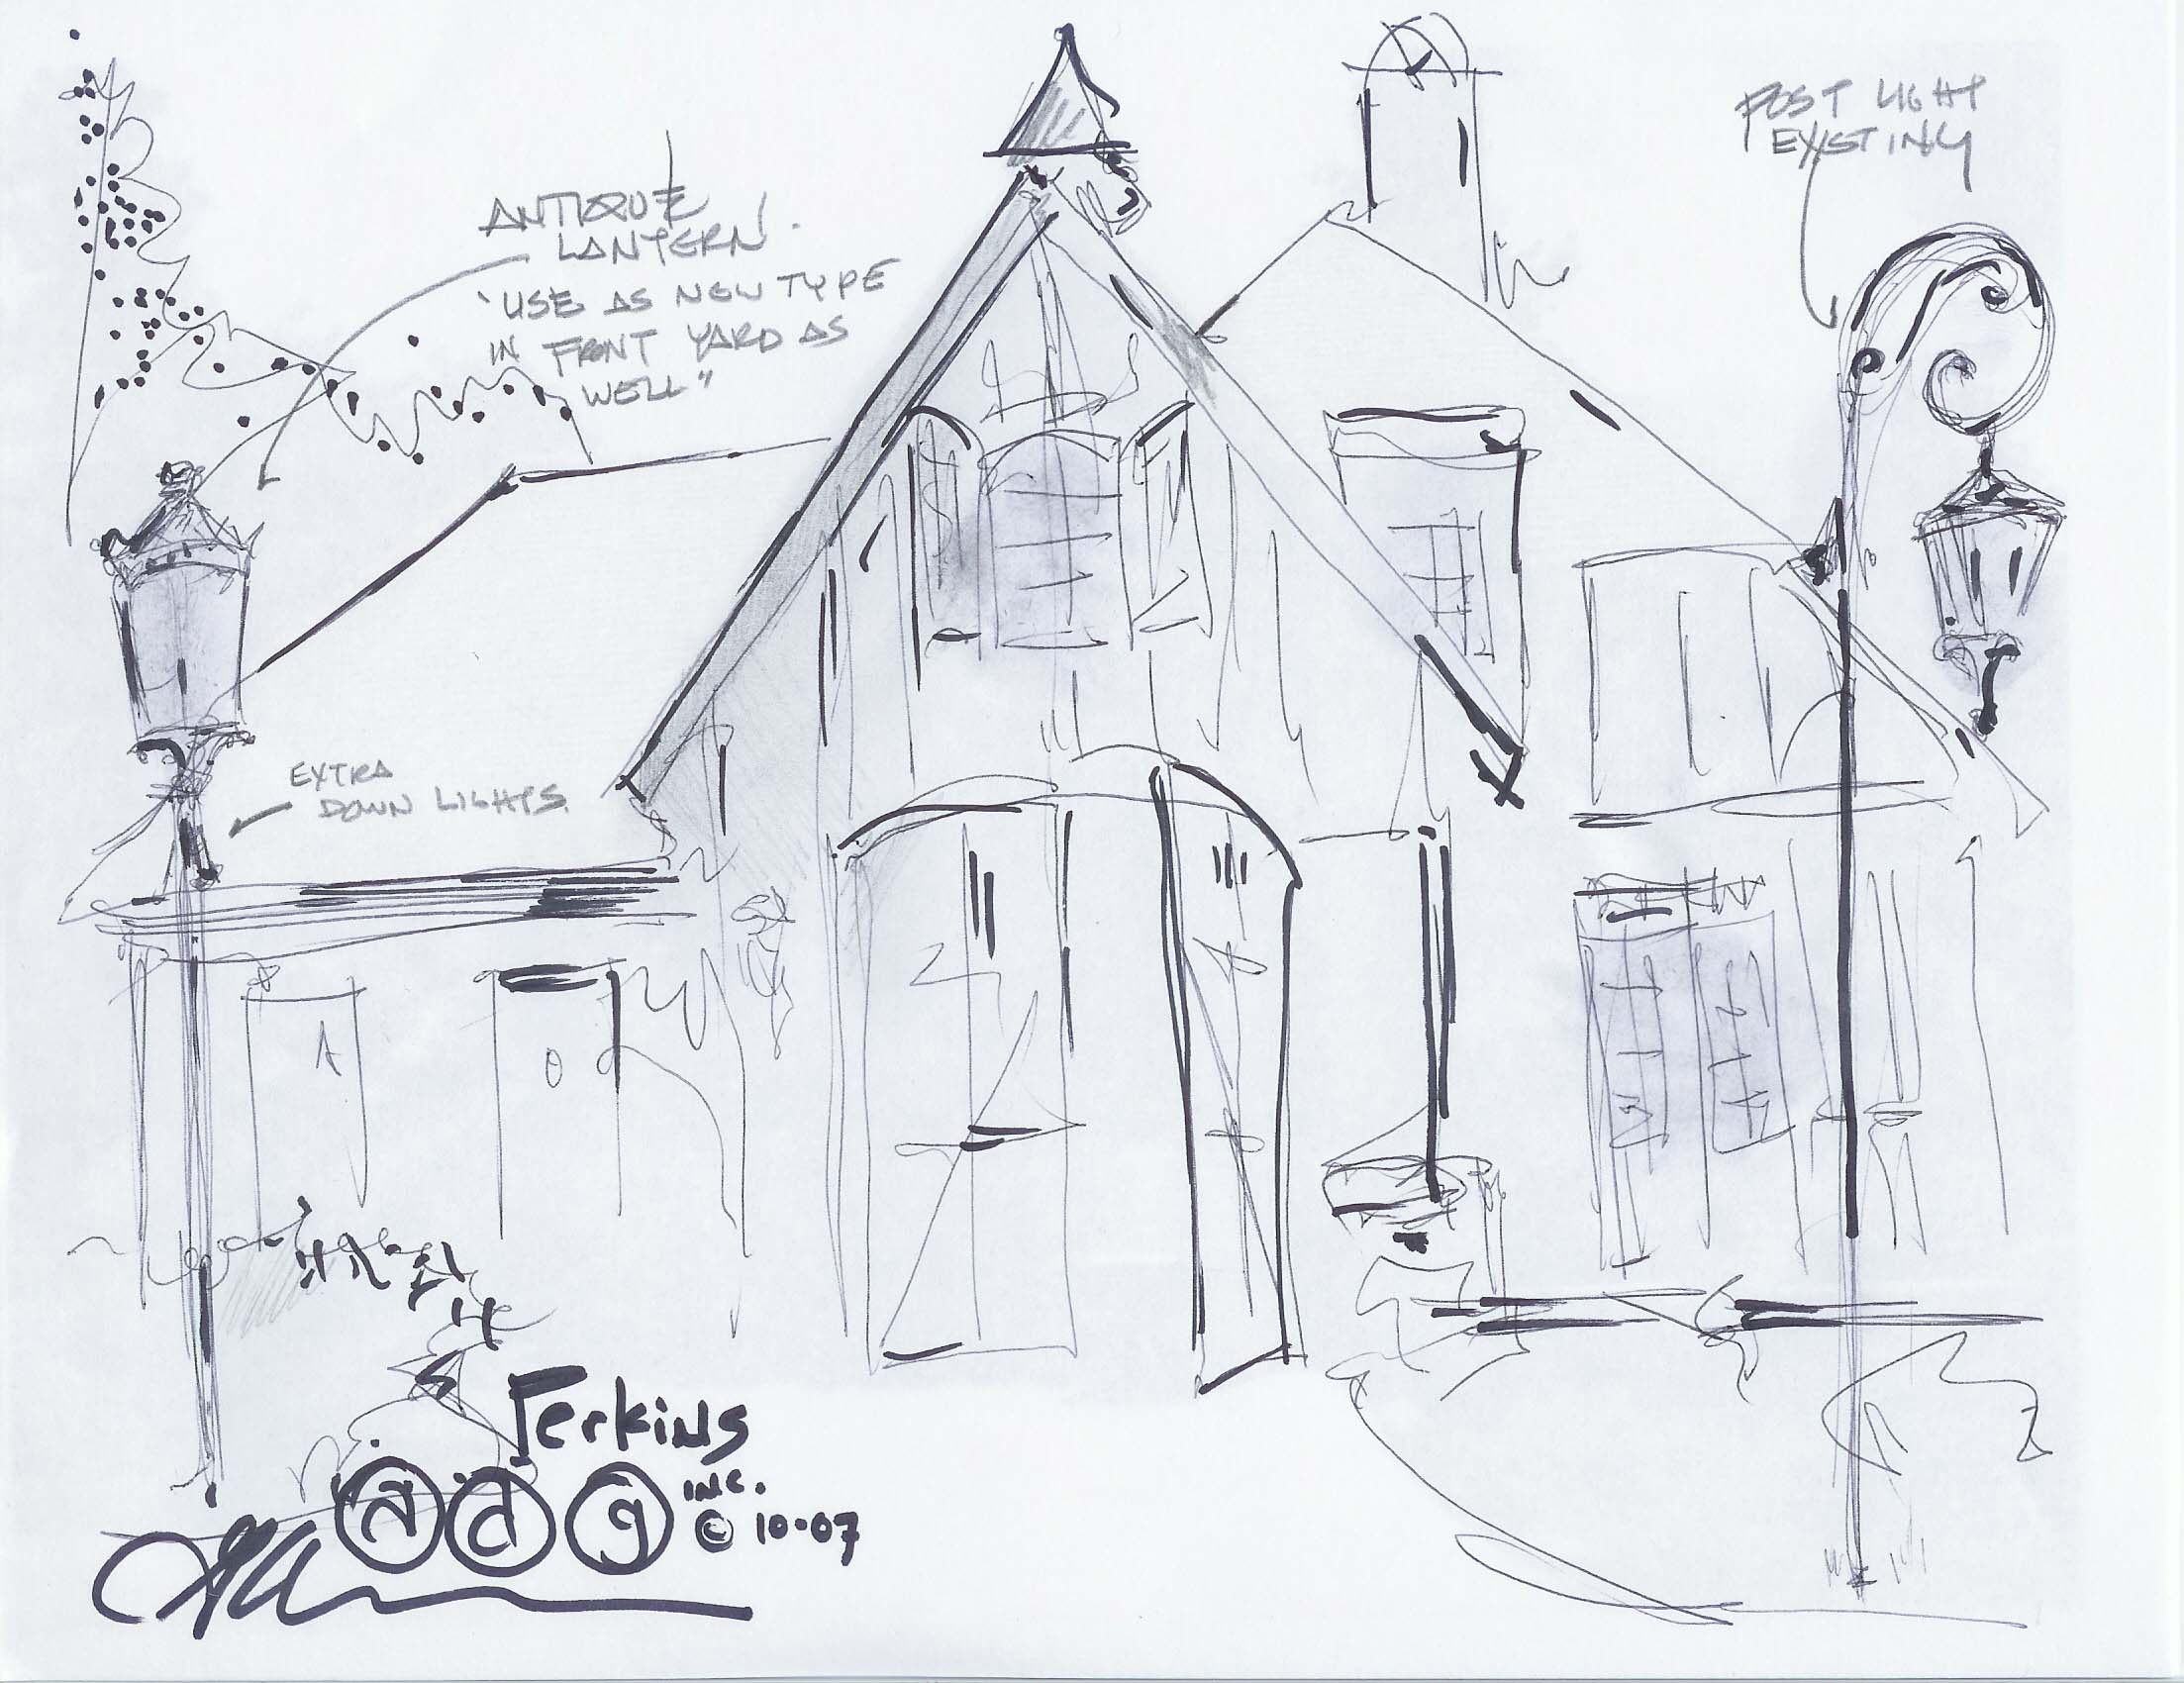 POST LIGHT
EXISTING
ANTIQUE
LANTERN.
"USE AS NEW TYPE
IN FRONT YARD AS
WELL"
EXTRA
DOWN LIGHTS.
Perkins
adg INC.
© 10-07